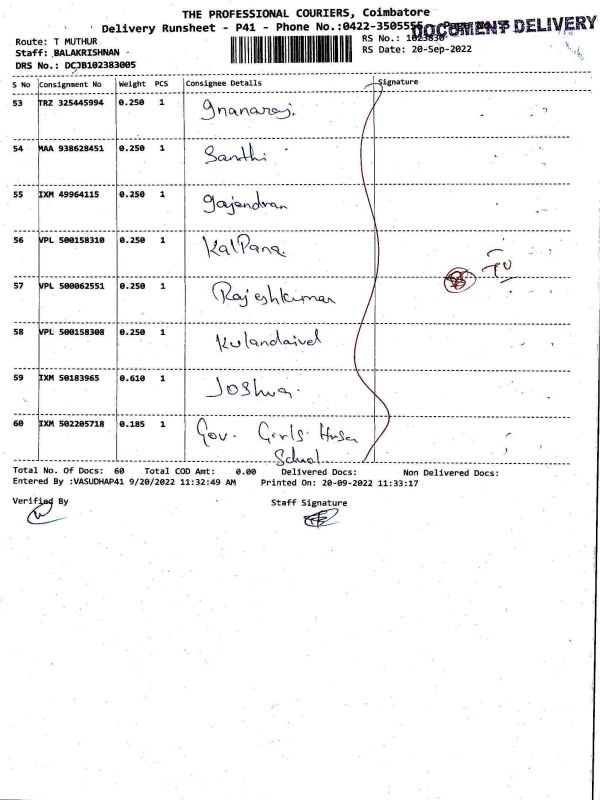 THE PROFESSIONAL COURIERS, Coimbatore
Delivery Runsheet - P41 - Phone No.:0422-3505556
DOCUMENT DELIVERY
Route: T MUTHUR
RS No.: 1023830
Staff: BALAKRISHNAN
RS Date: 20-Sep-2022
DRS No.: DCJB102383005
S No Consignment No Weight PCS Consignee Details Signature
53 TRZ 325445994 0.250 1 Gnanaraj.
54 MAA 938628451 0.250 1 Santhi
55 IXM 49964115 0.250 1 Gajendran
56 VPL 500158310 0.250 1 KalPana
TU
57 VPL 500062551 0.250 1 Rajeshkumar
58 VPL 500158308 0.250 1 Kulandaivel
59 IXM 50183965 0.610 1 Joshua.
60 IXM 502205718 0.185 1 Gov. Girls Hrsec
School
Total No. Of Docs: 60 Total COD Amt: 0.00 Delivered Docs: Non Delivered Docs:
Entered By :VASUDHAP41 9/20/2022 11:32:49 AM Printed On: 20-09-2022 11:33:17
Verified By Staff Signature